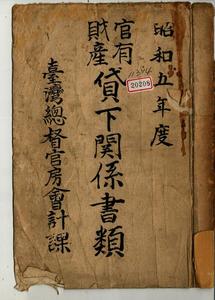 昭和五年度
11394
20205
官有財産
貸下関係書類
臺灣總督官房會計課